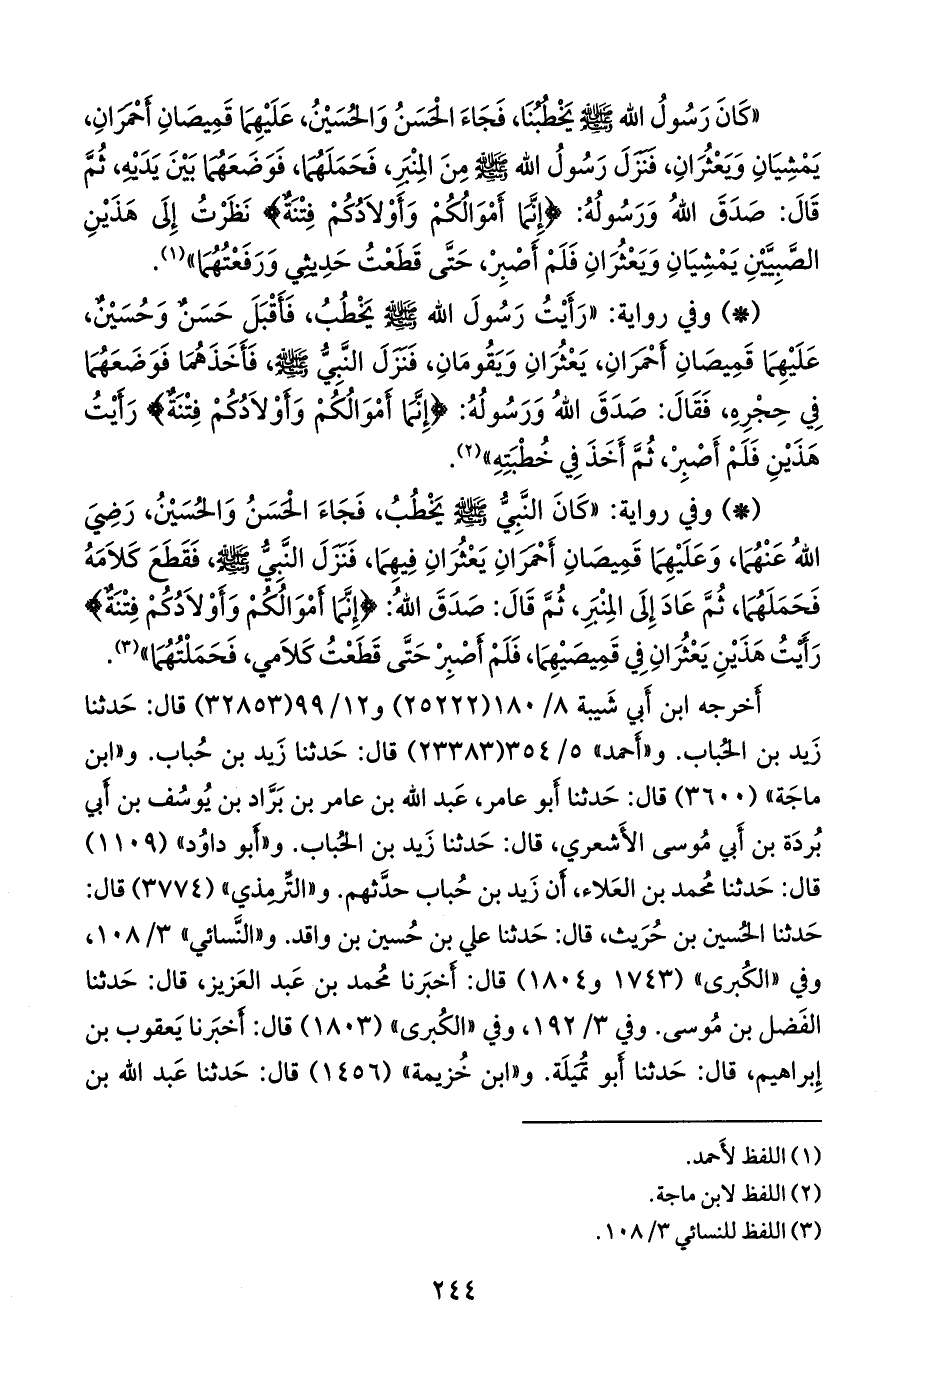 «كَانَ رَسُولُ الله ﷺ يَخْطُبُنَا، فَجَاءَ الْحَسَنُ وَالْحُسَيْنُ، عَلَيْهِمَا قَمِيصَانِ أَحْمَرَانِ،
يَمْشِيَانِ وَيَعْثُرَانِ، فَنَزَلَ رَسُولُ الله ﷺ مِنَ الْمِنْبَرِ، فَحَمَلَهُمَا، فَوَضَعَهُمَا بَيْنَ يَدَيْهِ، ثُمَّ
قَالَ: صَدَقَ اللهُ وَرَسُولُهُ: ﴿إِنَّمَا أَمْوَالُكُمْ وَأَوْلَادُكُمْ فِتْنَةٌ﴾ نَظَرْتُ إِلَى هَذَيْنِ
الصَّبِيَّيْنِ يَمْشِيَانِ وَيَعْثُرَانِ فَلَمْ أَصْبِرْ، حَتَّى قَطَعْتُ حَدِيثِي وَرَفَعْتُهُمَا»(١).
(*) وفي رواية: «رَأَيْتُ رَسُولَ الله ﷺ يَخْطُبُ، فَأَقْبَلَ حَسَنٌ وَحُسَيْنٌ،
عَلَيْهِمَا قَمِيصَانِ أَحْمَرَانِ، يَعْثُرَانِ وَيَقُومَانِ، فَنَزَلَ النَّبِيُّ ﷺ، فَأَخَذَهُمَا فَوَضَعَهُمَا
فِي حِجْرِهِ، فَقَالَ: صَدَقَ اللهُ وَرَسُولُهُ: ﴿إِنَّمَا أَمْوَالُكُمْ وَأَوْلَادُكُمْ فِتْنَةٌ﴾ رَأَيْتُ
هَذَيْنِ فَلَمْ أَصْبِرْ، ثُمَّ أَخَذَ فِي خُطْبَتِهِ»(٢).
(*) وفي رواية: «كَانَ النَّبِيُّ ﷺ يَخْطُبُ، فَجَاءَ الْحَسَنُ وَالْحُسَيْنُ، رَضِيَ
اللهُ عَنْهُمَا، وَعَلَيْهِمَا قَمِيصَانِ أَحْمَرَانِ يَعْثُرَانِ فِيهِمَا، فَنَزَلَ النَّبِيُّ ﷺ، فَقَطَعَ كَلَامَهُ
فَحَمَلَهُمَا، ثُمَّ عَادَ إِلَى الْمِنْبَرِ، ثُمَّ قَالَ: صَدَقَ اللهُ: ﴿إِنَّمَا أَمْوَالُكُمْ وَأَوْلَادُكُمْ فِتْنَةٌ﴾
رَأَيْتُ هَذَيْنِ يَعْثُرَانِ فِي قَمِيصَيْهِمَا، فَلَمْ أَصْبِرْ حَتَّى قَطَعْتُ كَلَامِي، فَحَمَلْتُهُمَا»(٣).
أَخرجه ابن أَبي شَيبة ٨/ ١٨٠(٢٥٢٢٢) و١٢/ ٩٩(٣٢٨٥٣) قال: حَدثنا
زَيد بن الحُباب. و«أَحمد» ٥/ ٣٥٤(٢٣٣٨٣) قال: حَدثنا زَيد بن حُباب. و«ابن
ماجَة» (٣٦٠٠) قال: حَدثنا أَبو عامر، عَبد الله بن عامر بن بَرَّاد بن يُوسُف بن أَبي
بُردَة بن أَبي مُوسى الأَشعري، قال: حَدثنا زَيد بن الحُباب. و«أَبو داوُد» (١١٠٩)
قال: حَدثنا مُحمد بن العَلاء، أَن زَيد بن حُباب حدَّثهم. و«التِّرمِذي» (٣٧٧٤) قال:
حَدثنا الحُسين بن حُرَيث، قال: حَدثنا علي بن حُسين بن واقد. و«النَّسائي» ٣/ ١٠٨،
وفي «الكُبرى» (١٧٤٣ و١٨٠٤) قال: أَخبَرنا مُحمد بن عَبد العَزيز، قال: حَدثنا
الفَضل بن مُوسى. وفي ٣/ ١٩٢، وفي «الكُبرى» (١٨٠٣) قال: أَخبَرنا يَعقوب بن
إِبراهيم، قال: حَدثنا أَبو تُمَيلَة. و«ابن خُزيمة» (١٤٥٦) قال: حَدثنا عَبد الله بن
(١) اللفظ لأَحمد.
(٢) اللفظ لابن ماجة.
(٣) اللفظ للنسائي ٣/ ١٠٨.
٢٤٤